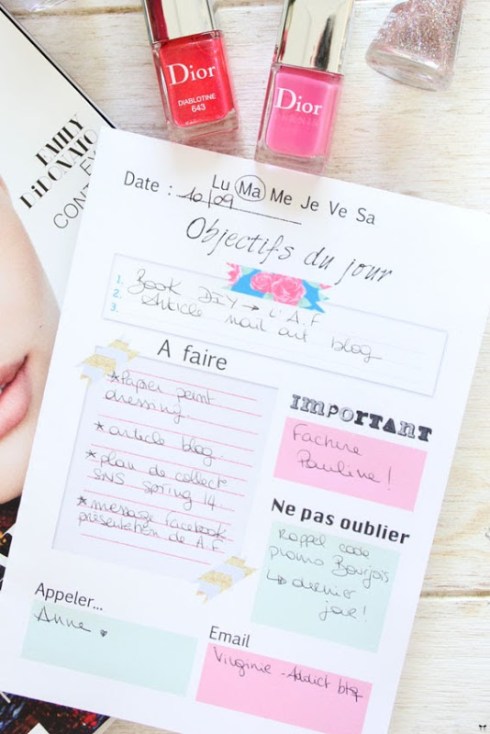 Dior
DIABLOTINE
643
Dior
EMILY
DiDONATO
EX
CONT
Lu Ma Me Je Ve Sa
Date : 10/09
Objectifs du jour
1. Book DIY → L'A.F
2. Article mail art blog
3.
A faire
*Papier peint
dressing.
*article blog.
*plan de collect
SNS Spring 14.
*message Facebook
présentation de A.F
IMPORTANT
Facture
Pauline!
Ne pas oublier
Rappel code
promo Bourjois
↳ dernier
jour!
Appeler...
Anne ♥
Email
Virginie - Addict blog